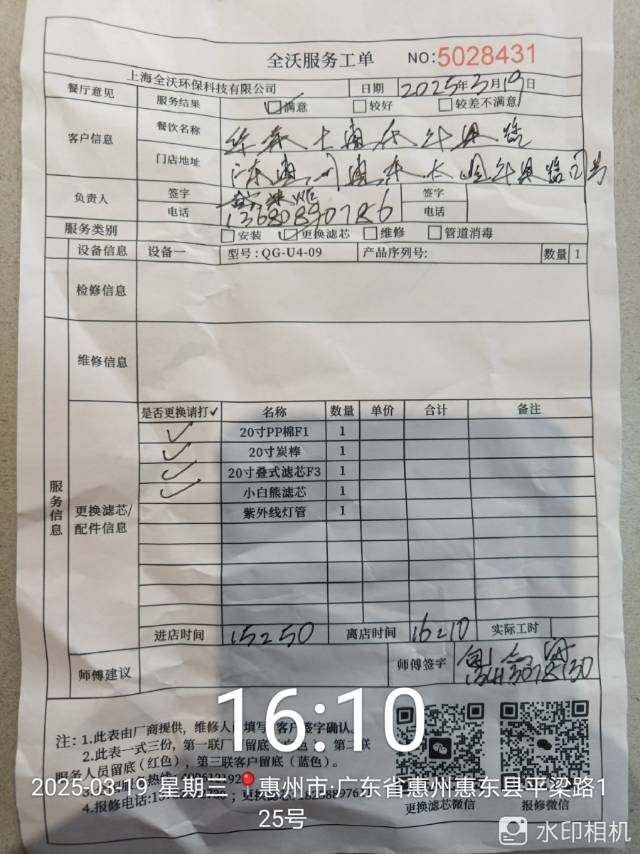 全沃服务工单 NO:5028431
上海全沃环保科技有限公司 日期 2025年3月19日
餐厅意见 服务结果 满意 较好 较差不满意
客户信息 餐饮名称
门店地址 广东
负责人 签字 签字
电话 13680890786 电话
服务类别 安装 更换滤芯 维修 管道消毒
设备信息 设备一 型号:QG-U4-09 产品序列号: 数量 1
检修信息
维修信息
服务信息
更换滤芯/配件信息
是否更换请打✓ 名称 数量 单价 合计 备注
✓ 20寸PP棉F1 1
✓ 20寸炭棒 1
✓ 20寸叠式滤芯F3 1
✓ 小白熊滤芯 1
紫外线灯管 1
进店时间 15:50 离店时间 16:10 实际工时
师傅建议 师傅签字
16:10
注: 1.此表由厂商提供，维修人 填写 客户签字确认。
2.此表一式三份，第一联厂 留底 色 第二联
服务人员留底(红色)，第三联客户留底(蓝色)。
4.报修电话:
更换滤芯微信 报修微信
2025-03-19 星期三 惠州市·广东省惠州惠东县平梁路1
25号
水印相机